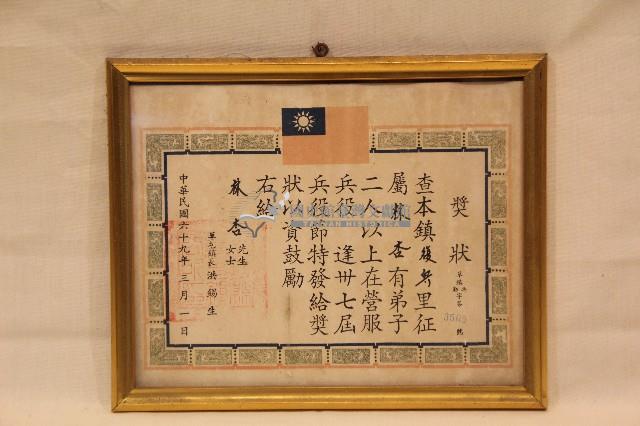 獎狀
字第 3503 號
查本鎮復興里征
屬蘇杏有弟子
二人以上在營服
兵役 逢卅七屆
兵役節特發給獎
狀以資鼓勵
右給
蘇杏 先生
女士
鎮長 洪錫生
中華民國六十九年三月一日
國史館臺灣文獻館
TAIWAN HISTORICA